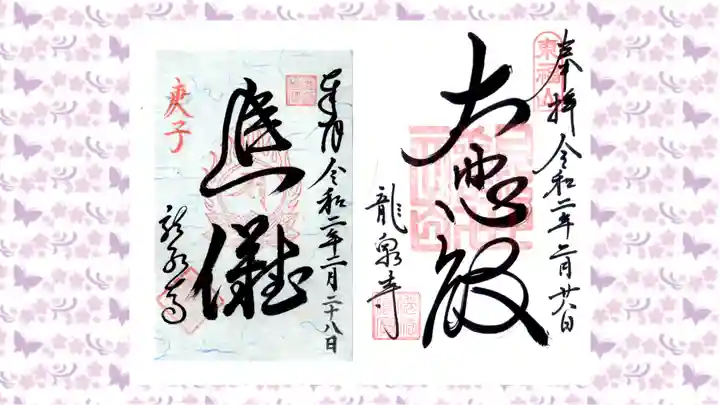 東福山
奉拝 令和二年二月廿八日
大悲殿
龍泉寺
奉拝 令和二年二月二十八日
儀
庚子
龍泉寺